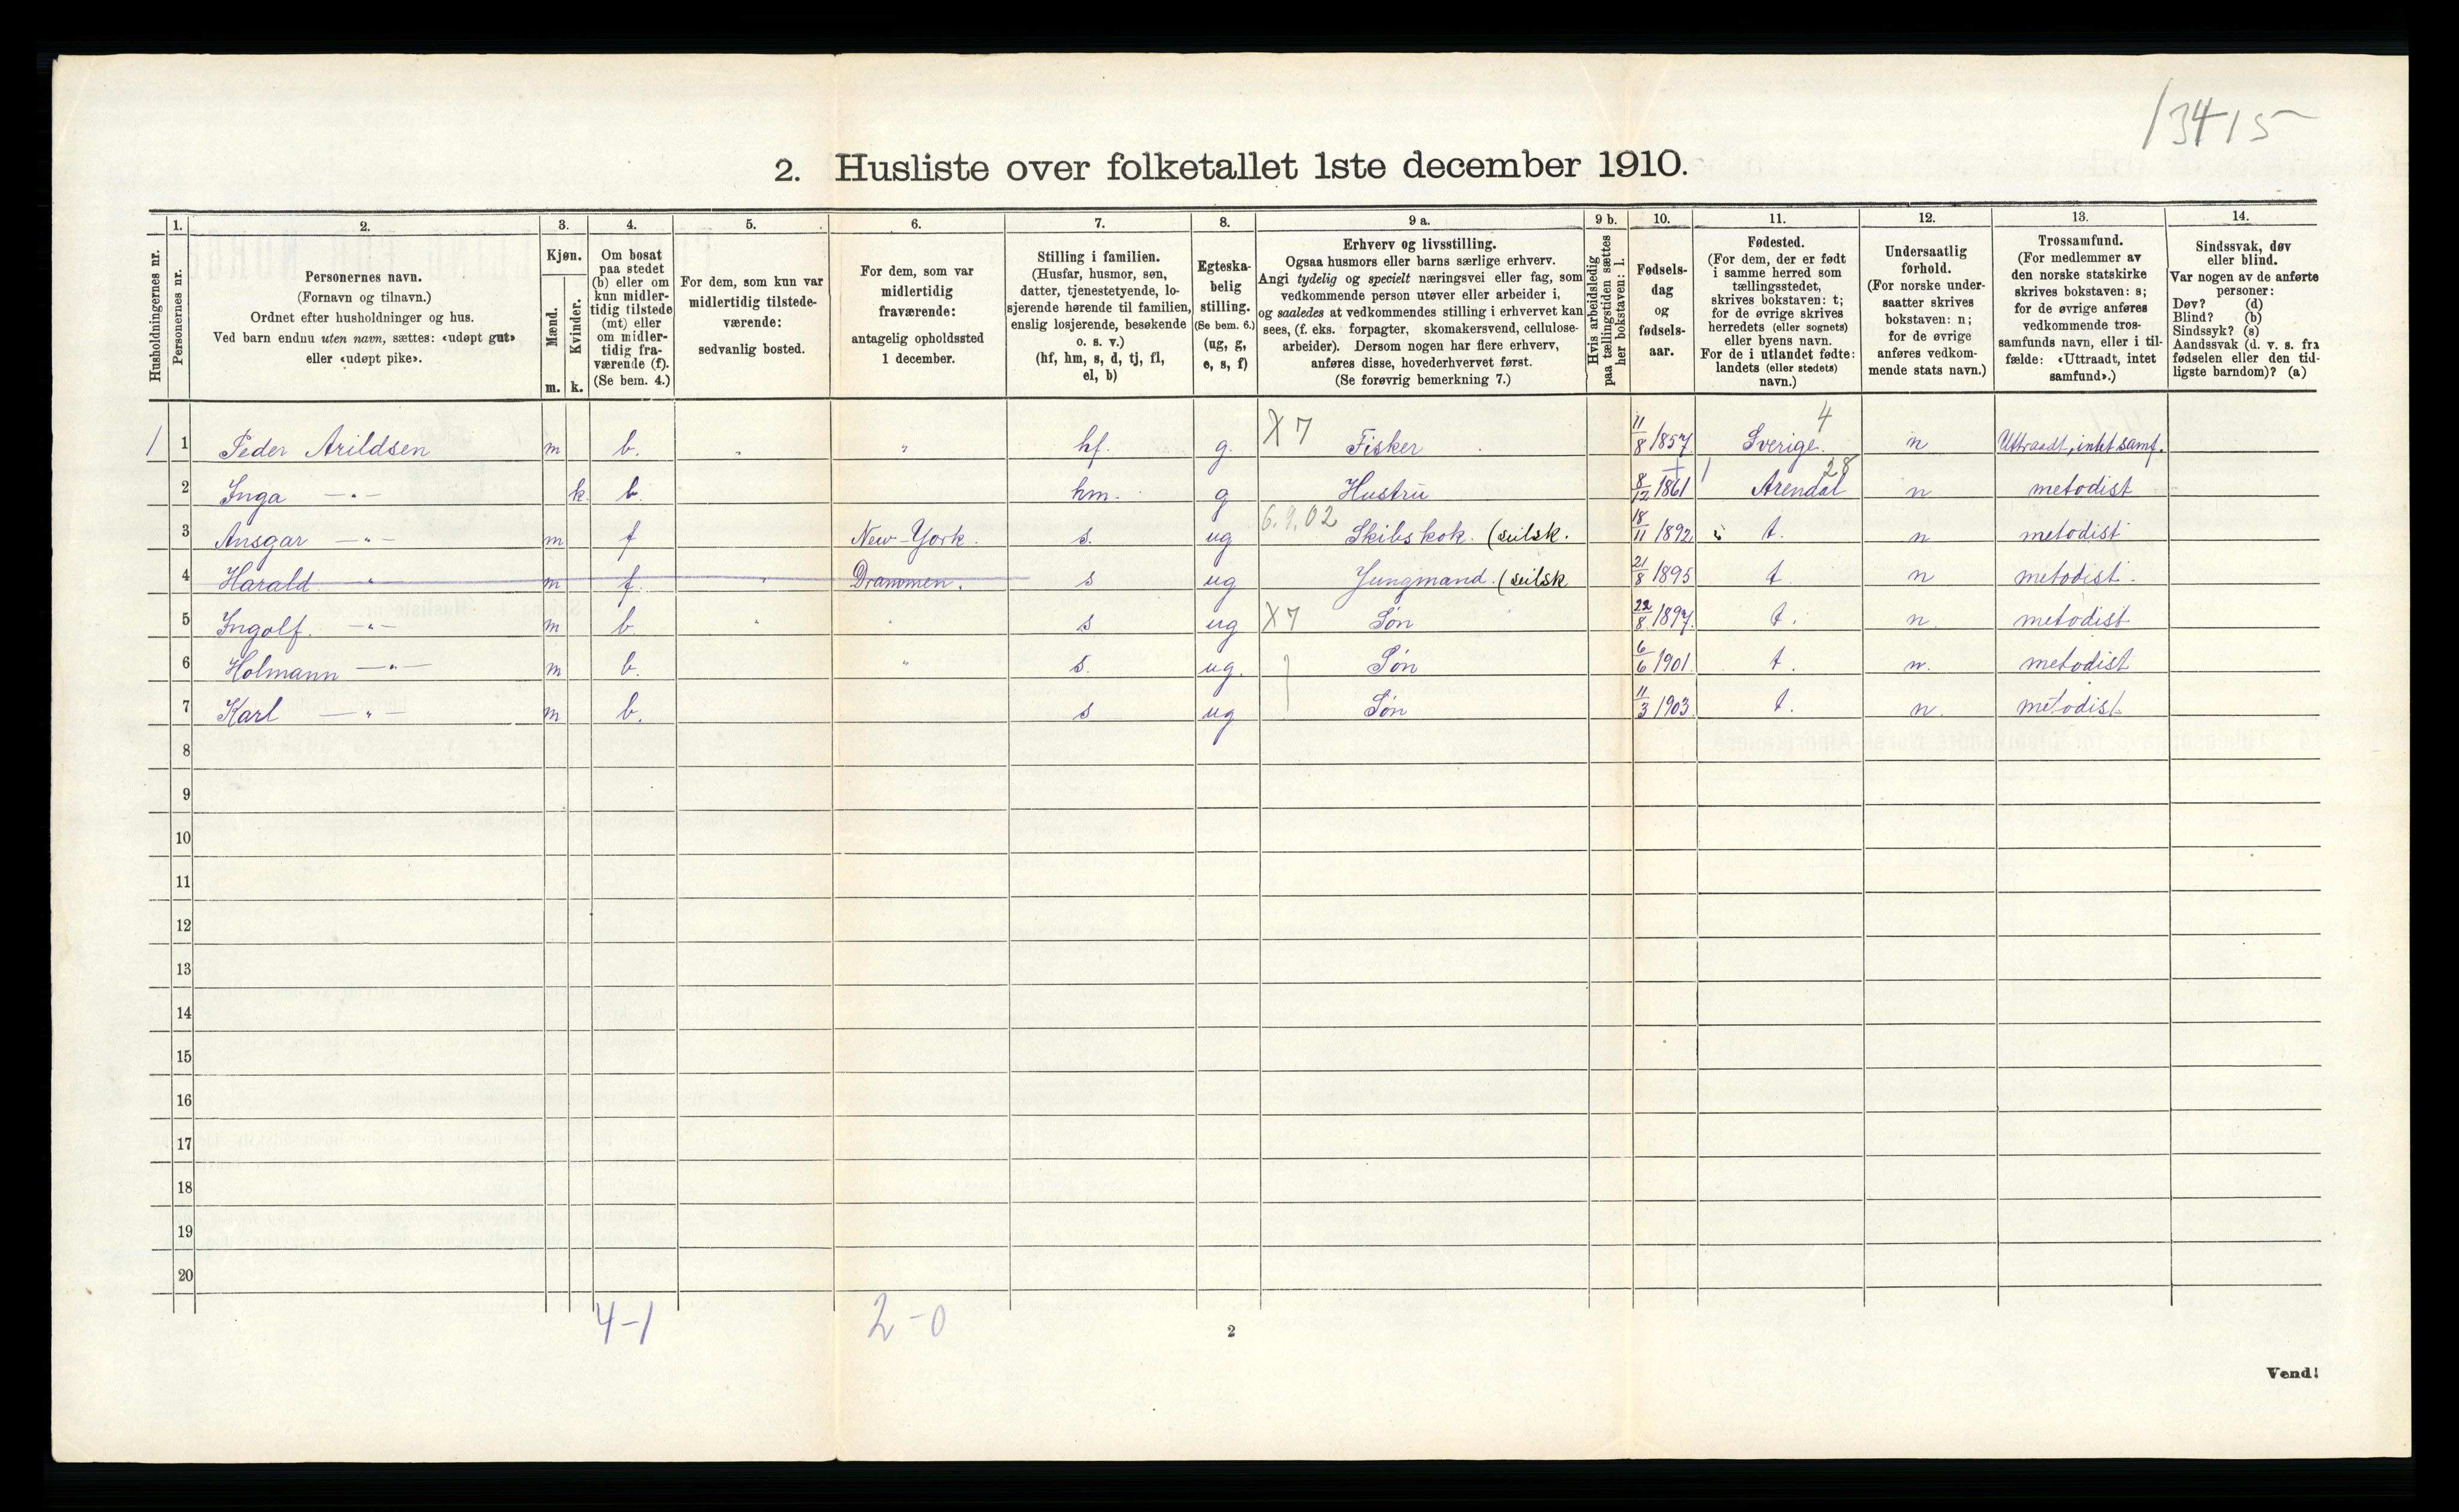 13415
2. Husliste over folketallet 1ste december 1910.
Husholdningernes nr.
1.
Personernes nr.
2.
Personernes navn.
(Fornavn og tilnavn.)
Ordnet efter husholdninger og hus.
Ved barn endnu uten navn, sættes: «udøpt gut»
eller «udøpt pike».
3.
Kjøn.
Mænd.
Kvinder.
m. k.
4.
Om bosat
paa stedet
(b) eller om
kun midler-
tidig tilstede
(mt) eller
om midler-
tidig fra-
værende (f).
(Se bem. 4.)
5.
For dem, som kun var
midlertidig tilstede-
værende:
sedvanlig bosted.
6.
For dem, som var
midlertidig
fraværende:
antagelig opholdssted
1 december.
7.
Stilling i familien.
(Husfar, husmor, søn,
datter, tjenestetyende, lo-
sjerende hørende til familien,
enslig losjerende, besøkende
o. s. v.)
(hf, hm, s, d, tj, fl,
el, b)
8.
Egteska-
belig
stilling.
(Se bem. 6.)
(ug, g,
e, s, f)
9 a.
Erhverv og livsstilling.
Ogsaa husmors eller barns særlige erhverv.
Angi tydelig og specielt næringsvei eller fag, som
vedkommende person utøver eller arbeider i,
og saaledes at vedkommendes stilling i erhvervet kan
sees, (f. eks. forpagter, skomakersvend, cellulose-
arbeider). Dersom nogen har flere erhverv,
anføres disse, hovederhvervet først.
(Se forøvrig bemerkning 7.)
9 b.
Hvis arbeidsledig
paa tællingstiden sættes
her bokstaven: l.
10.
Fødsels-
dag
og
fødsels-
aar.
11.
Fødested.
(For dem, der er født
i samme herred som
tællingsstedet,
skrives bokstaven: t;
for de øvrige skrives
herredets (eller sognets)
eller byens navn.
For de i utlandet fødte:
landets (eller stedets)
navn.)
12.
Undersaatlig
forhold.
(For norske under-
saatter skrives
bokstaven: n;
for de øvrige
anføres vedkom-
mende stats navn.)
13.
Trossamfund.
(For medlemmer av
den norske statskirke
skrives bokstaven: s;
for de øvrige anføres
vedkommende tros-
samfunds navn, eller i til-
fælde: «Uttraadt, intet
samfund».)
14.
Sindssvak, døv
eller blind.
Var nogen av de anførte
personer:
Døv? (d)
Blind? (b)
Sindssyk? (s)
Aandssvak (d. v. s. fra
fødselen eller den tid-
ligste barndom)? (a)
1 1 Peder Arildsen m b. " " hf. g. X 7 Fisker 11/8 1857 Sverige. 4 n Uttraadt, intet samf.
2 Inga —"— k. b. hm. g Hustru 8/12 1861 Arendal 28 n metodist
3 Ansgar —"— m f New-York. s. ug 6.9.02 Skibskok. (seilsk. 18/11 1892 t. n metodist
4 Harald " m f. " Drammen. s ug Jungmand. (seilsk 21/8 1895 t. n metodist.
5 Ingolf. —"— m b " s ug X 7 Søn 22/8 1897. t. n. metodist
6 Holmann —"— m b. " s. ug. Søn 6/6 1901. t. n. metodist
7 Karl —"— m b. s ug Søn 11/3 1903. t. n. metodist.
8
9
10
11
12
13
14
15
16
17
18
19
20
4-1 2-0
2
Vend!